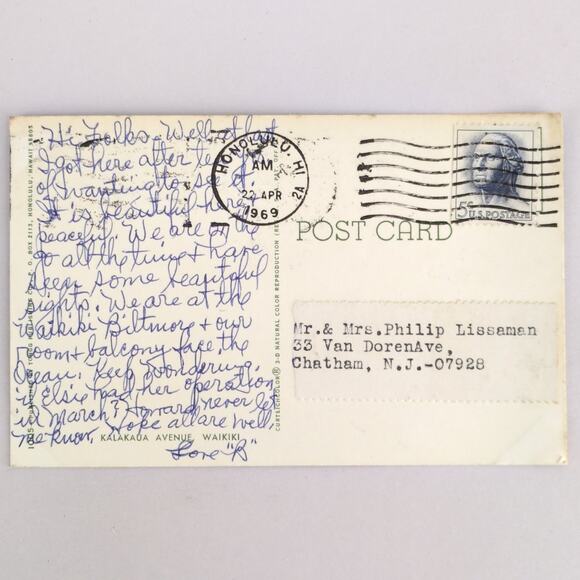 Hi Folks - Well at last
I got here after
of wanting to so
It is beautiful here
peaceful. We are on the
go all the time & have
seen some beautiful
sights. We are at the
Waikiki Biltmore & our
room & balcony face the
Ocean. Keep wondering
if Elsie had her operation
in March? Howard never let
me know. Hope all are well.
Love "B"
KALAKAUA AVENUE, WAIKIKI
P. O. BOX 2112, HONOLULU, HAWAII 96805
CURTEICHCOLOR® 3-D NATURAL COLOR REPRODUCTION
HONOLULU, HI
AM
22 APR
1969
2A
5¢ U.S. POSTAGE
POST CARD
Mr.& Mrs.Philip Lissaman
33 Van DorenAve,
Chatham, N.J.-07928